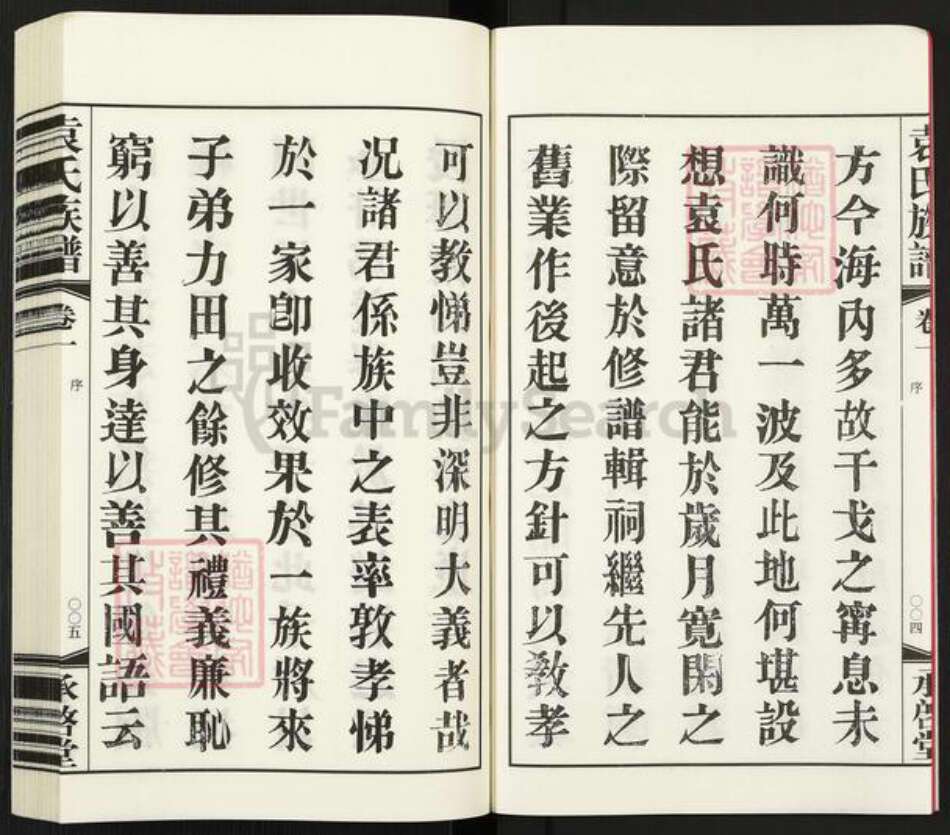 袁氏族譜 卷一 序 〇〇四 承啓堂
方今海內多故干戈之寗息未
識何時萬一波及此地何堪設
想袁氏諸君能於歲月寬閑之
際留意於修譜輯祠繼先人之
舊業作後起之方針可以教孝
可以教悌豈非深明大義者哉
况諸君係族中之表率敦孝悌
於一家卽收效果於一族將來
子弟力田之餘修其禮義廉恥
窮以善其身達以善其國語云
袁氏族譜 卷一 序 〇〇五 承啓堂
FamilySearch